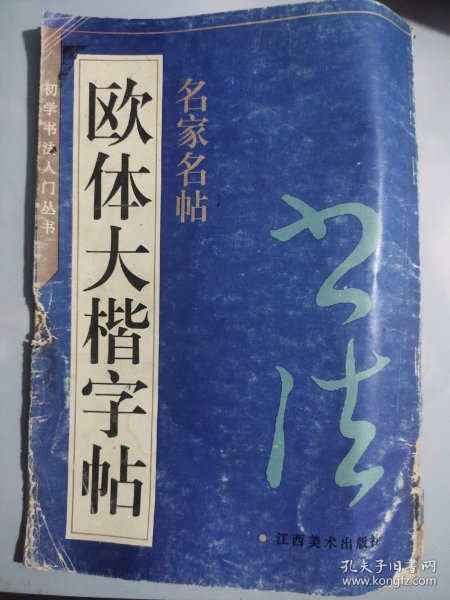 初学书法入门丛书
欧体大楷字帖
名家名帖
书法
江西美术出版社
孔夫子旧书网
www.kongfz.com